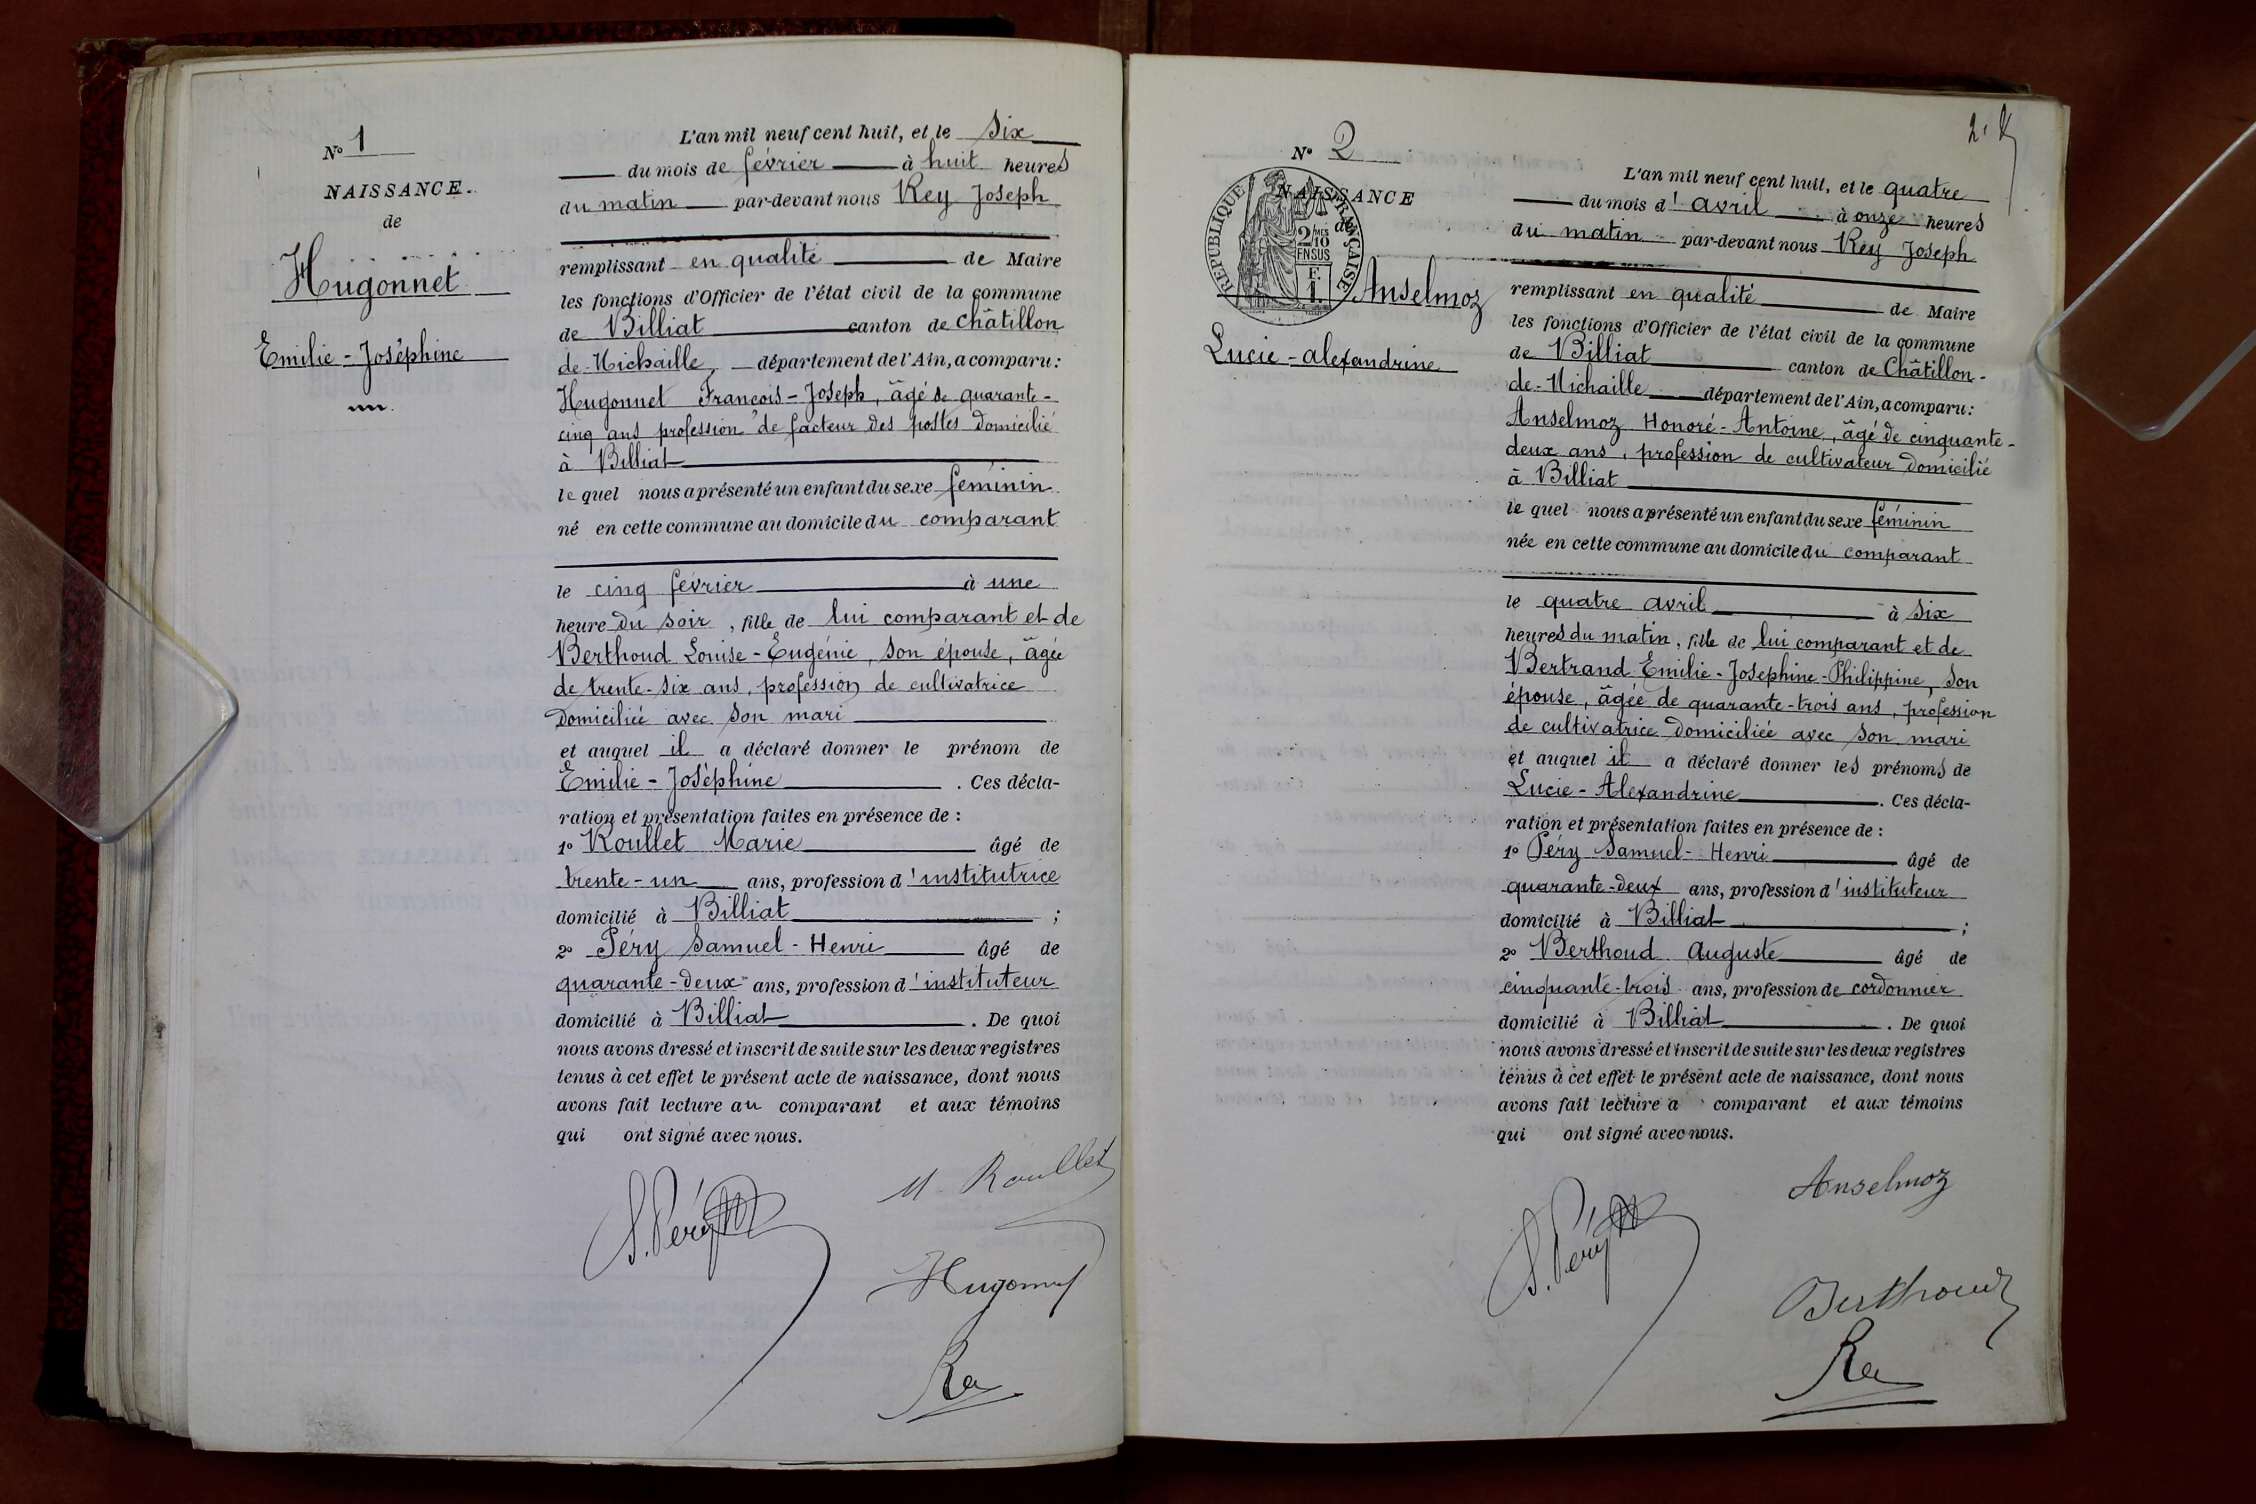 N° 1
NAISSANCE.
de
Hugonnet
Emilie - Joséphine
L'an mil neuf cent huit, et le six
du mois de février à huit heures
du matin par-devant nous Rey Joseph
remplissant en qualité de Maire
les fonctions d'Officier de l'état civil de la commune
de Billiat canton de Châtillon
de Michaille, département de l'Ain, a comparu:
Hugonnet François - Joseph, âgé de quarante-
cinq ans profession de facteur des postes domicilié
à Billiat
le quel nous a présenté un enfant du sexe féminin
né en cette commune au domicile du comparant
le cinq février à une
heure du soir, fille de lui comparant et de
Berthoud Louise - Eugénie, son épouse, âgée
de trente-six ans, profession de cultivatrice
domiciliée avec son mari
et auquel il a déclaré donner le prénom de
Emilie - Joséphine. Ces décla-
ration et présentation faites en présence de :
1° Roullet Marie âgé de
trente-un ans, profession d'institutrice
domicilié à Billiat ;
2° Péry Samuel - Henri âgé de
quarante-deux ans, profession d'instituteur
domicilié à Billiat. De quoi
nous avons dressé et inscrit de suite sur les deux registres
tenus à cet effet le présent acte de naissance, dont nous
avons fait lecture au comparant et aux témoins
qui ont signé avec nous.
M. Roullet
S. Péry
Hugonnet
Rey
2.
N° 2
NAISSANCE
de
REPUBLIQUE FRANÇAISE
2/10
MES
EN SUS
F.
1.
Anselmoz
Lucie - Alexandrine
L'an mil neuf cent huit, et le quatre
du mois d'avril à onze heures
du matin par-devant nous Rey Joseph
remplissant en qualité de Maire
les fonctions d'Officier de l'état civil de la commune
de Billiat canton de Châtillon-
de-Michaille département de l'Ain, a comparu:
Anselmoz Honoré - Antoine, âgé de cinquante-
deux ans, profession de cultivateur domicilié
à Billiat
le quel nous a présenté un enfant du sexe féminin
née en cette commune au domicile du comparant
le quatre avril à six
heures du matin, fille de lui comparant et de
Bertrand Emilie - Joséphine - Philippine, son
épouse, âgée de quarante-trois ans, profession
de cultivatrice domiciliée avec son mari
et auquel il a déclaré donner les prénoms de
Lucie - Alexandrine. Ces décla-
ration et présentation faites en présence de :
1° Péry Samuel - Henri âgé de
quarante-deux ans, profession d'instituteur
domicilié à Billiat ;
2° Berthoud Auguste âgé de
cinquante-trois ans, profession de cordonnier
domicilié à Billiat. De quoi
nous avons dressé et inscrit de suite sur les deux registres
tenus à cet effet le présent acte de naissance, dont nous
avons fait lecture a comparant et aux témoins
qui ont signé avec nous.
Anselmoz
S. Péry
Berthoud
Rey